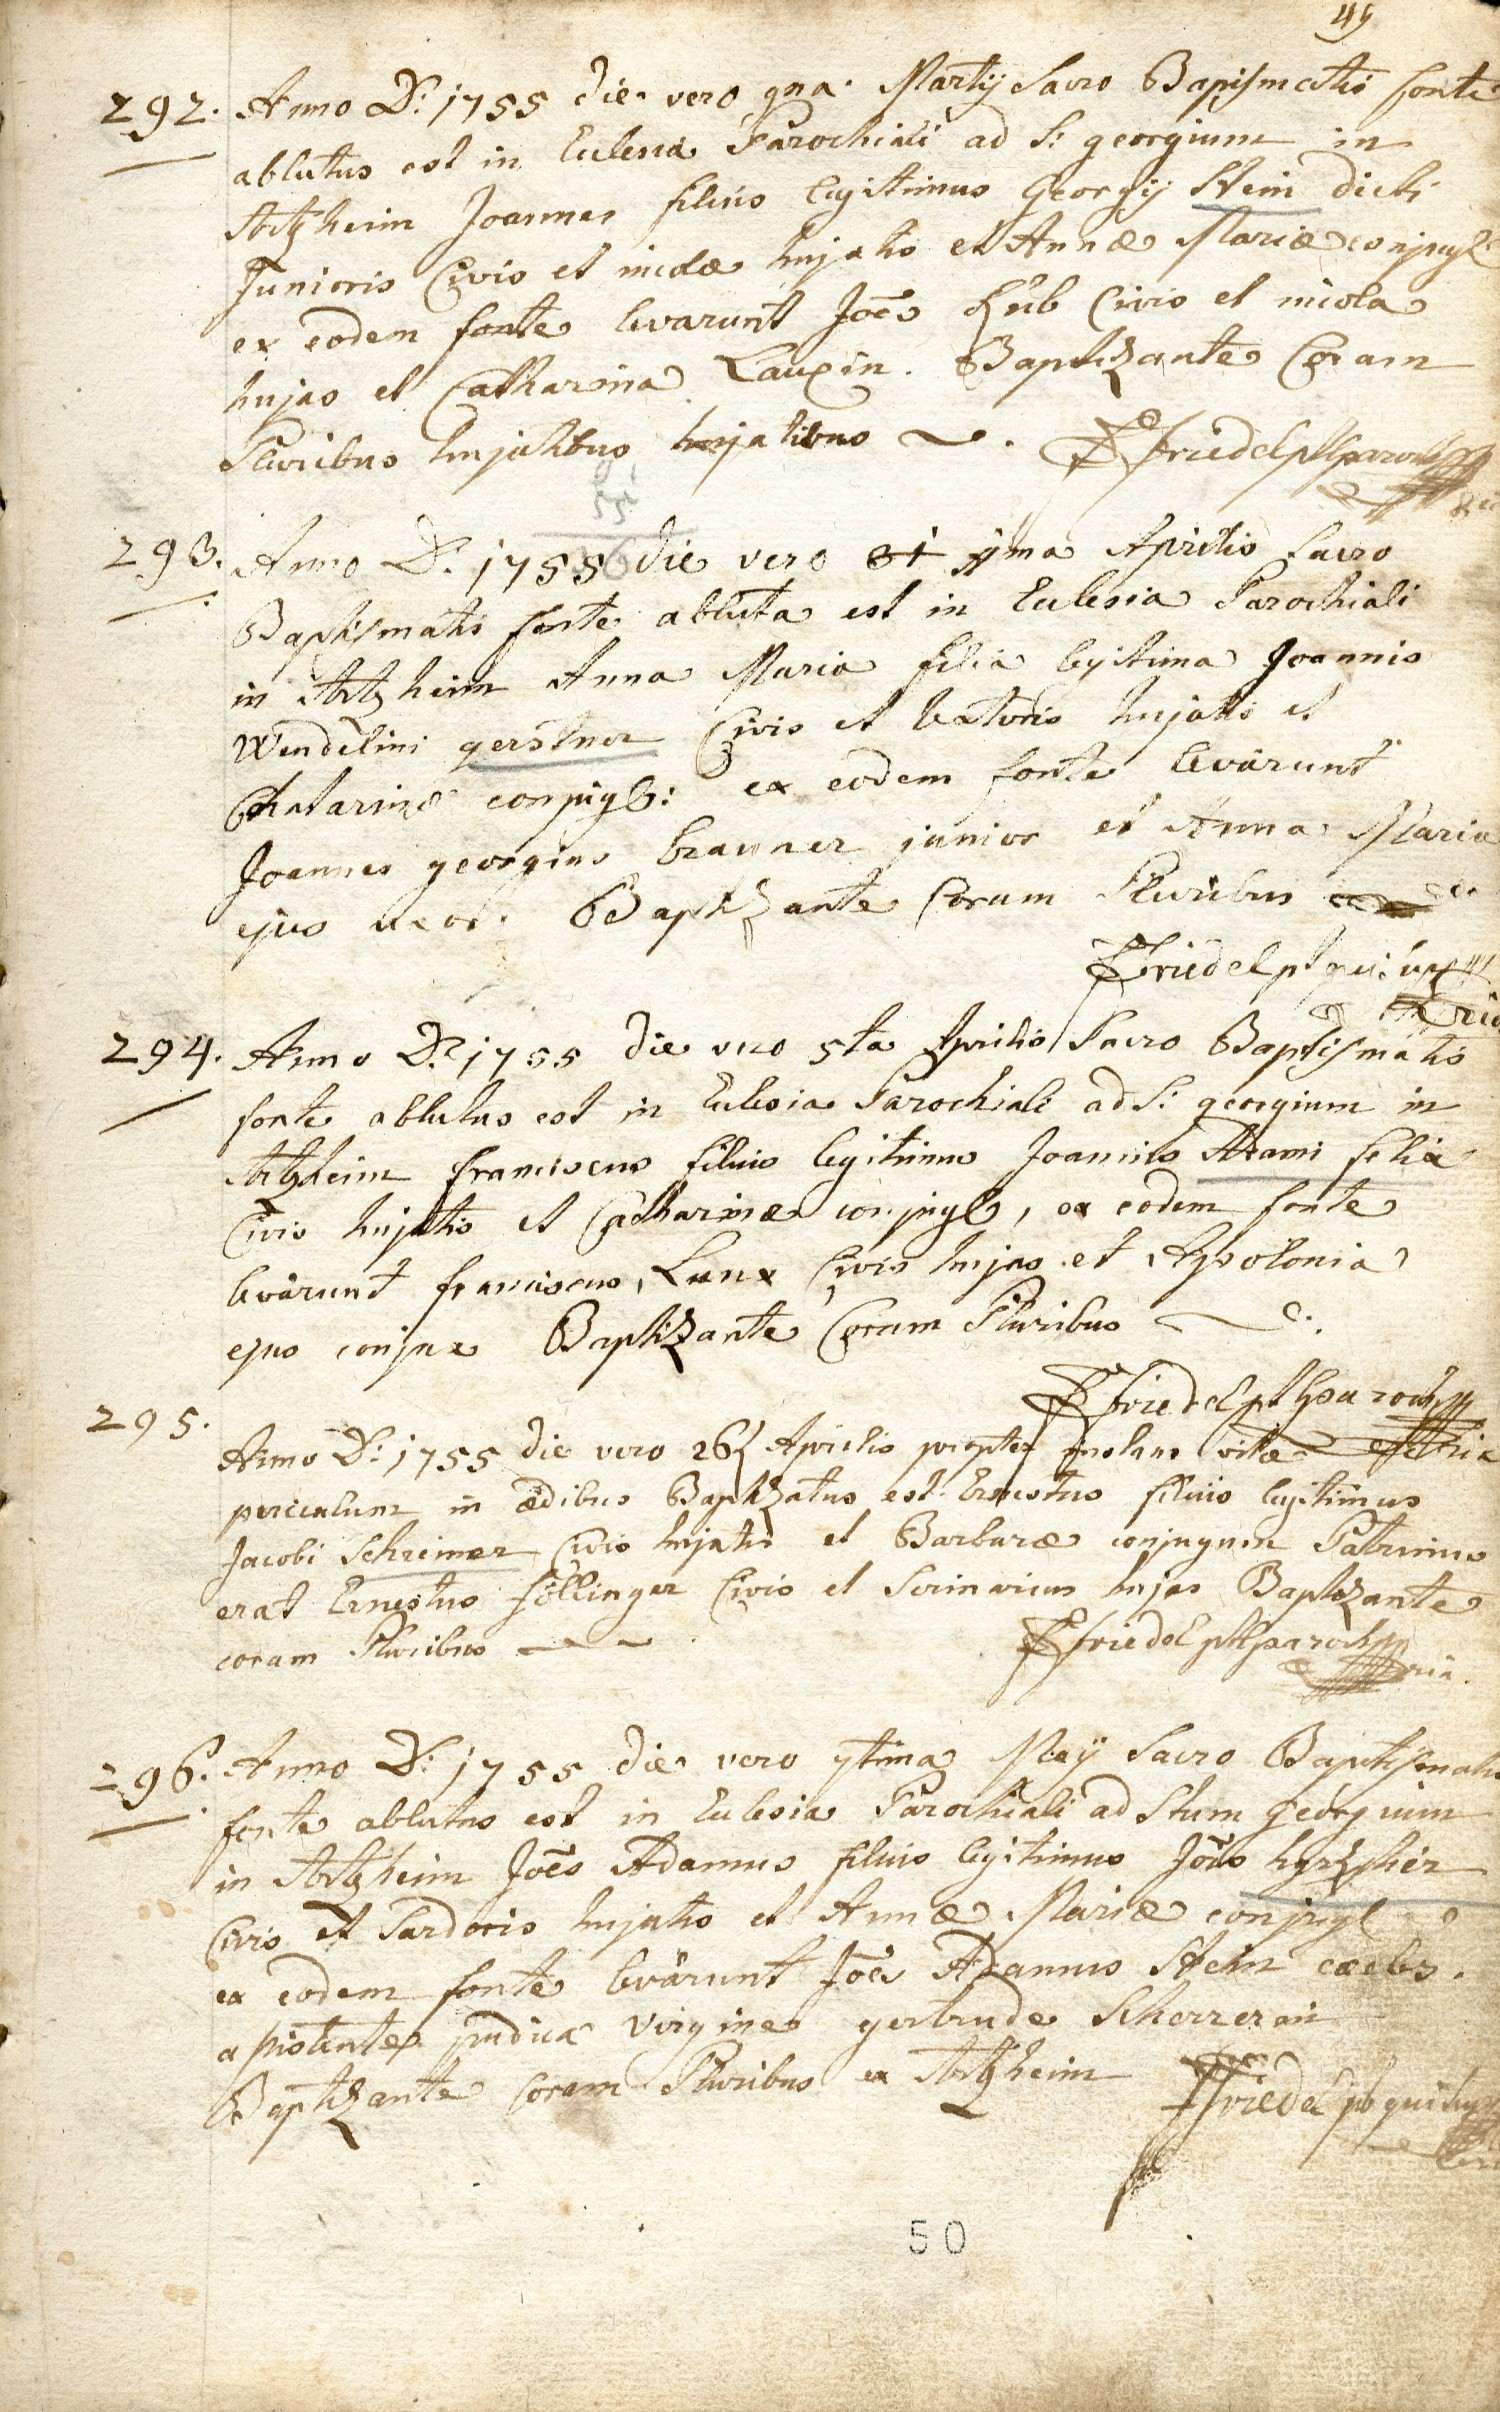 49
292. Anno D: 1755 die vero 9na Martij Sacro Bapismatis fonte
ablutus est in Eclesia Parochiali ad S: georgium in
Artzheim Joannes filius legitimus Georgij Stein dicti
Junioris Civis et incolæ hujatis et Annæ Mariæ conjugl
ex eodem fonte levarunt Joēs Kub Civis et incola
hujas et Catharina Lauxin. Baptizante Coram
Pluribus hujatibus hujatibus
Friedel pt parochs
293. Anno D: 1755 die vero 1ma Aprilis Sacro
Baptismatis fonte abluta est in Eclesia Parochiali
in Artzheim Anna Maria filia legitima Joannis
Wendelini gerstner Civis et hujatis et
Chatarinæ conjugl: ex eodem fonte levarunt
Joannes georgius brauner junior et Anna Maria
ejus uxor. Baptizante Coram Pluribus
Friedel pt
294. Anno D: 1755 die vero 5ta Aprilis Sacro Baptismatis
fonte ablutus est in Eclesia Parochiali ad S: georgium in
Artzheim franciscus filius legitimus Joannis Adami felix
Civis hujatis et Catharinæ conjugl, ex eodem fonte
levarunt franciscus Lunx Civis hujas et Appolonia
ejus conjux Baptizante Coram Pluribus
Friedel pt parochs
295.
Anno D: 1755 die vero 26 Aprilis propter vitæ
periculum in ædibus Baptizatus est Ernestus filius legitimus
Jacobi Schreiner Civis hujatis et Barbaræ conjugum Patrinus
erat Ernestus föllinger Civis et Scrinarius hujas Baptizante
coram Pluribus
Friedel pt parochs
296. Anno D: 1755 die vero 7tima Maij Sacro Baptismatis
fonte ablutus est in Eclesia Parochiali ad Stum georgium
in Artzheim Joēs Adamus filius legitimus Joēs
Civis et Sardoris hujatis et Annæ Mariæ conjugl
ex eodem fonte levarunt Joēs Adamus Stein cælebs.
apistente pudica virgine gertrude Scherrerin
Baptizante coram Pluribus ex Artzheim Friedel
50